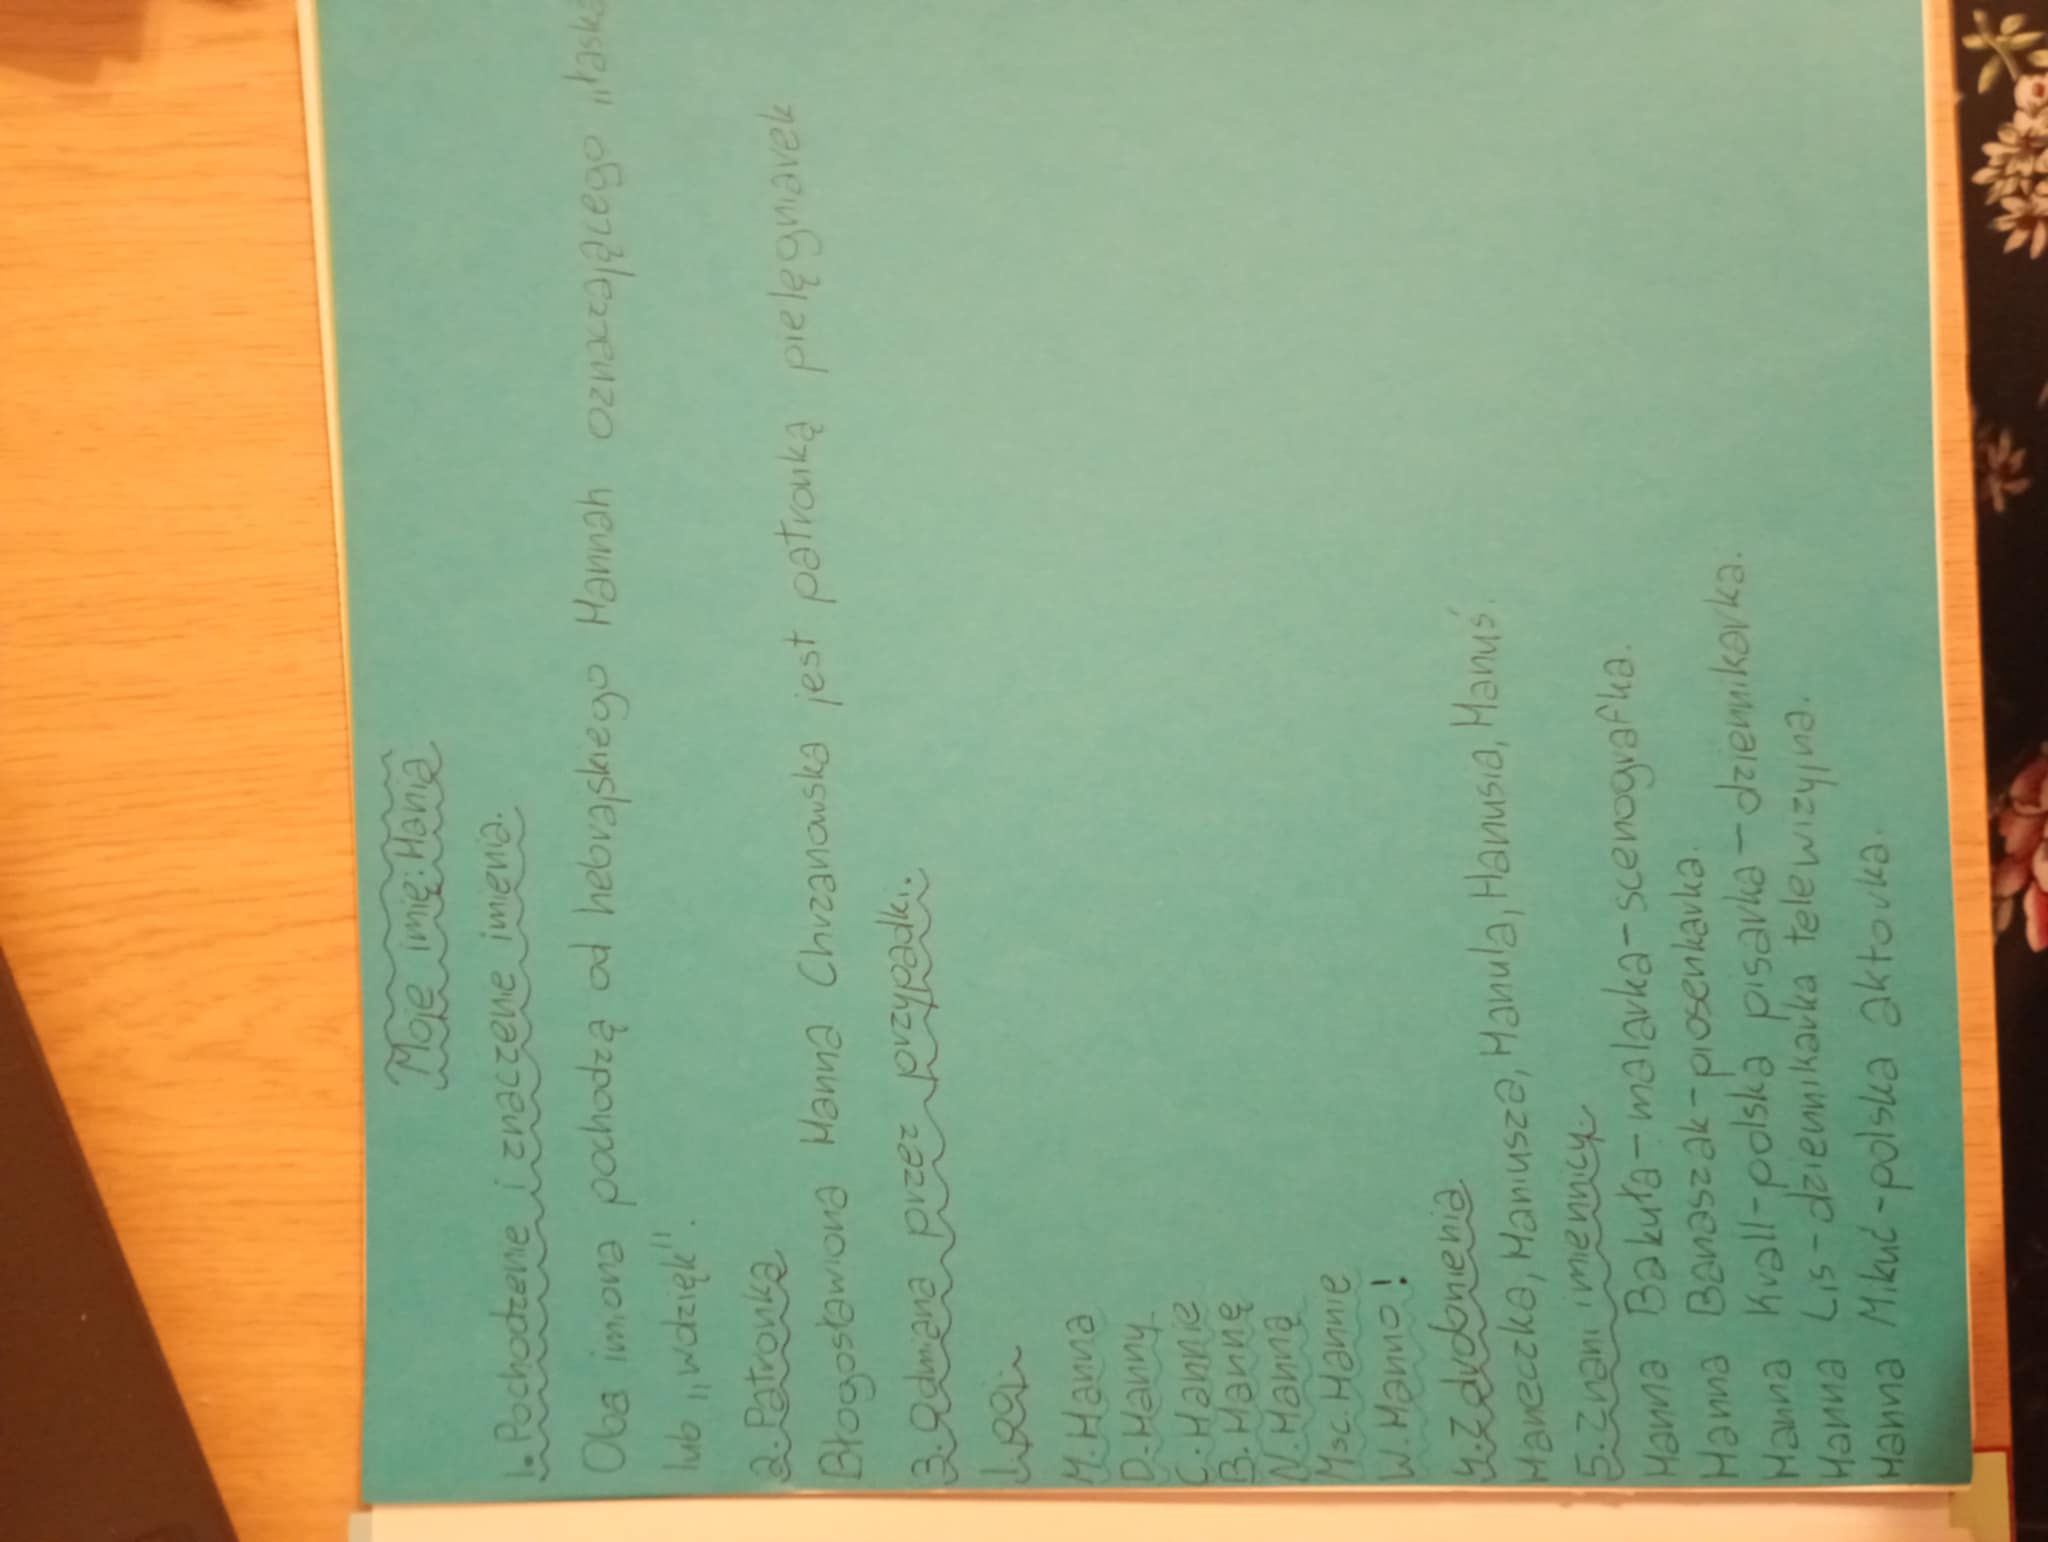 Moje imię: Hania
1. Pochodzenie i znaczenie imiena.
Oba imiona pochodzą od hebrajskiego Hannah oznaczającego „łaska
lub „wdzięk".
2. Patronka
Błogosławiona Hanna Chrzanowska jest patronką pielęgniarek
3. Odmiana przez przypadki.
l.poj.
M. Hanna
D. Hanny
C. Hannie
B. Hannę
N. Hanną
Msc. Hannie
W. Hanno!
4. Zdrobnienia
Haneczka, Haniusza, Hanula, Hanusia, Hanuś.
5. Znani imiennicy.
Hanna Bakuła - malarka - scenografka.
Hanna Banaszak - piosenkarka.
Hanna Krall - polska pisarka - dziennikarka.
Hanna Lis - dziennikarka telewizyjna.
Hanna Mikuć - polska aktorka.